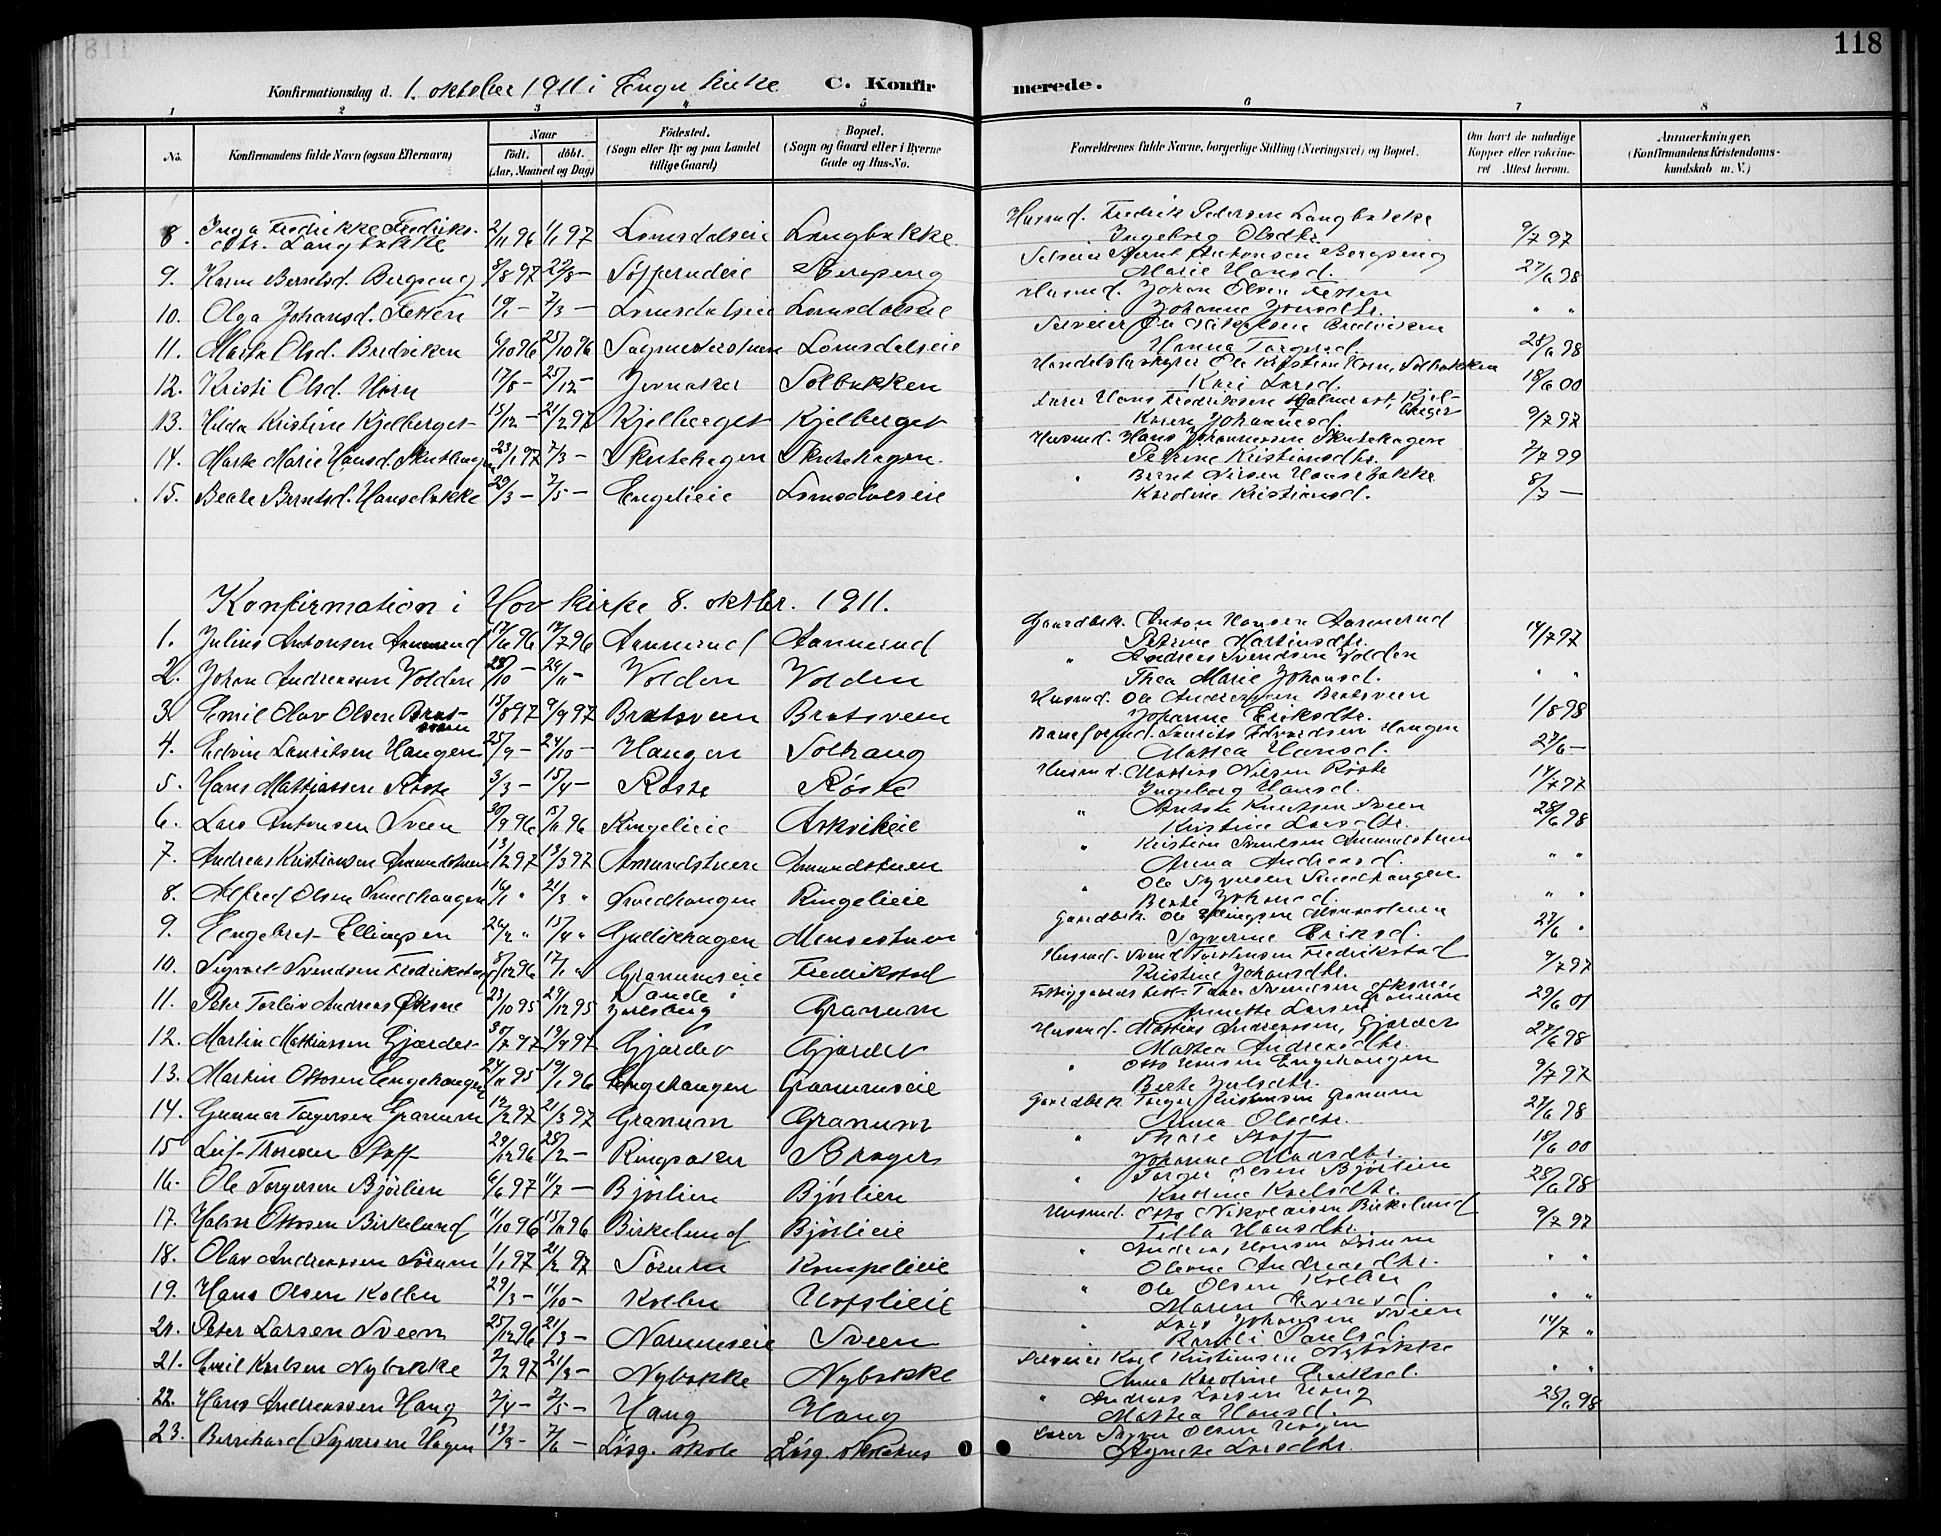 118
Konfirmationsdag d. 1. oktober 1911 i Enger kirke C. Konfirmerede.
1 2 3 4 5 6 7 8
No. Konfirmandens fulde Navn (ogsaa Efternavn) Naar født. døbt. (Aar, Maaned og Dag) Fødested. (Sogn eller By og paa Landet tillige Gaard) Bopæl. (Sogn og Gaard eller i Byerne Gade og Hus-No. Forældrenes fulde Navne, borgerlige Stilling (Næringsvei) og Bopæl. Om havt de naturlige Kopper eller vakcineret Attest herom. Anmærkninger. (Konfirmandens Kristendomskundskab m. V.)
8. Inga Fredrikke Fredriksdtr. Langbakke 2/11 96 1/1 97 Lomsdalseie Langbakke Husmd. Fredrik Pedersen Langbakke
Ingeborg Olsdtr. 9/7 97
9. Karen Berntsd. Bergseng 8/8 97 29/8 — Bergseng Selveier Bernt Antonsen Bergseng
Marie Hansd. 27/6 98
10. Olga Johansd. 19/1 — 7/3 — Lomsdalseie Lomsdalseie Husmd. Johan Olsen
Johanne " "
11. Marta Olsd. Bredviken 6/10 96 25/10 96 Lomsdalseie Selveier Ole Bredviken
Hanna Torgersd. 28/6 98
12. Kristi Olsd. Horn 17/8 — 25/12 — Jevnaker Solbakken Handelsbestyrer Ole Kristian Horn, Solbakken
Kari Larsd. 18/6 00
13. Hilda Kristine Kjelberget 15/12 — 21/2 97 Kjelberget Kjelberget Lærer Hans Fredriksen Kjelberget
Karen Johannesd. 9/7 97
14. Marte Marie Hansd. Skutehagen 23/1 97 7/3 — Skutehagen Skutehagen Husmd. Hans Johannessen Skutehagen
Petrine Kristiansdtr. 7/7 99
15. Beate Berntsd. Hansebakke 29/3 — 7/5 — Engelieie Lomsdalseie " Bernt Nilsen Hansebakke
Karoline Kristiansd. 8/7 —
Konfirmation i Hov kirke 8. oktbr. 1911.
1. Julius Antonsen Aannerud 17/6 96 19/7 96 Aannerud Aannerud Gaardbek. Anton Hansen Aannerud
Petrine Martinsdtr. 14/7 97
2. Johan Andreassen Volden 28/10 — 24/11 — Volden Volden " Andreas Svendsen Volden
Thea Marie Johansd. " "
3. Emil Olav Olsen Bratsveen 15/8 97 9/9 97 Bratsveen Bratsveen Husmd. Ole Andreassen Bratsveen
Johanne Eriksdtr. 1/8 98
4. Edvin Lauritsen Haugen 25/9 — 24/10 — Haugen Solhaug Laurits Edvardsen Haugen
Mattea Hansd. 27/6 —
5. Hans Mattiassen Røste 3/3 — 15/4 — Røste Røste Husmd. Mattias Nilsen Røste
Ingeborg Hansd. 14/7 97
6. Lars Antonsen Sveen 30/9 96 15/11 96 Ringelieie Askvikeie " Anton Knutsen Sveen
Kristine Larsdtr. 28/6 98
7. Andreas Kristiansen Amundstuen 13/2 97 19/3 97 Amundstuen Amundstuen " Kristian Svendsen Amundstuen
Anna Andreasd. " "
8. Alfred Olsen Svedhaugen 16/1 " 21/3 " Svedhaugen Ringelieie " Ole Syversen Svedhaugen
Berte Johansd. " "
9. Engebret Ellingsen 26/2 " 15/4 " Gullikhagen Monsestuen Gaardbek. Ole Ellingsen Monsestuen
Syverine Eriksd. 27/6 "
10. Sigvart Svendsen Fredrikstad 8/12 96 17/1 " Granumseie Fredrikstad Husmd. Svend Torstensen Fredrikstad
Kristine Johansdtr. 9/7 97
11. Peter Torleiv Andreas Øksne 23/10 95 29/12 95 Sande i Jarlsberg Granum Svendsen Øksne, Granum
Annette Larsen 29/6 01
12. Martin Mattiassen Gjærder 30/7 97 19/9 97 Gjærder Gjærder Husmd. Mattias Andreassen, Gjærder
Mattea Andreasdtr. 27/6 98
13. Martin Ottosen Engehaugen 24/11 95 19/1 96 Engehaugen Granumseie " Otto Hansen Engehaugen
Berte Julsdtr. 9/7 97
14. Gunnar Torgersen Granum 12/2 97 21/3 97 Granum Granum Gaardbek. Torger Kristensen Granum
Anna Olsdtr. 27/6 98
15 Leif Thoresen Staff 29/12 96 28/2 — Ringsaker Skager " Thore Staff
Johanne 18/6 00
16. Ole Torgersen Bjørlien 6/6 97 11/7 — Bjørlien Bjørlien " Torger Olsen Bjørlien
Karlsdtr. 28/6 98
17. Halvor Ottosen Birkelund 11/10 96 15/11 96 Birkelund Bjørlieie Husmd. Otto Nikolaisen Birkelund
Tilla Hansdtr. 9/7 97
18. Olav Andreassen Sørum 1/1 97 21/2 97 Sørum Kompelieie " Andreas Hansen Sørum
Olava Andreasdtr. " "
19. Hans Olsen Kolbu 29/3 — 11/10 — Kolbu Hofslieie " Ole Olsen Kolbu
Maren Evensd. " "
20. Peter Larsen Sveen 25/12 96 21/3 — Narumseie Sveen " Lars Johansen Sveen
Randi Paulsd. 14/7 "
21. Emil Karlsen Nybakke 2/2 97 21/3 — Nybakke Nybakke Selveier Karl Kristiansen Nybakke
Anna Karoline Eriksd. " "
22. Hans Andreassen Haug 2/4 — 2/5 — Haug Haug " Andreas Larsen Haug
Mattea Hansd. 28/6 98
23. Bernhard Syversen Hagen 13/3 — 7/6 — Løsg. skole Løsg. skolehus Lærer Syver Olsen Hagen
Agnete Larsdtr.